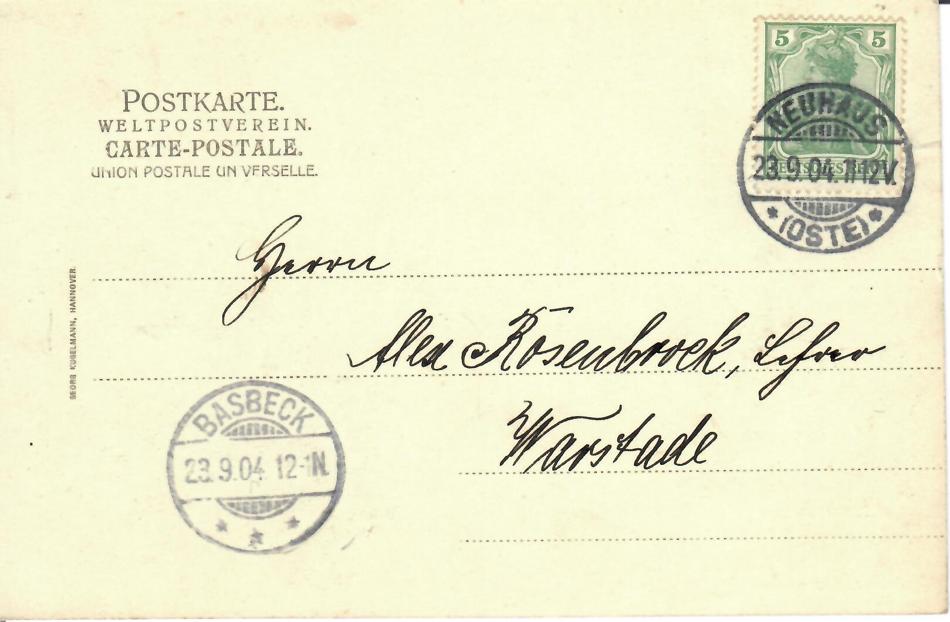 POSTKARTE.
WELTPOSTVEREIN.
CARTE-POSTALE.
UNION POSTALE UNIVERSELLE.
5 5
DEUTSCHES REICH
NEUHAUS
23.9.04.11-12V.
* (OSTE) *
Herrn
Alex Rosenbrock, Lehrer
Warstade
GEORG KUGELMANN, HANNOVER.
BASBECK
23.9.04 12-1N.
* * *